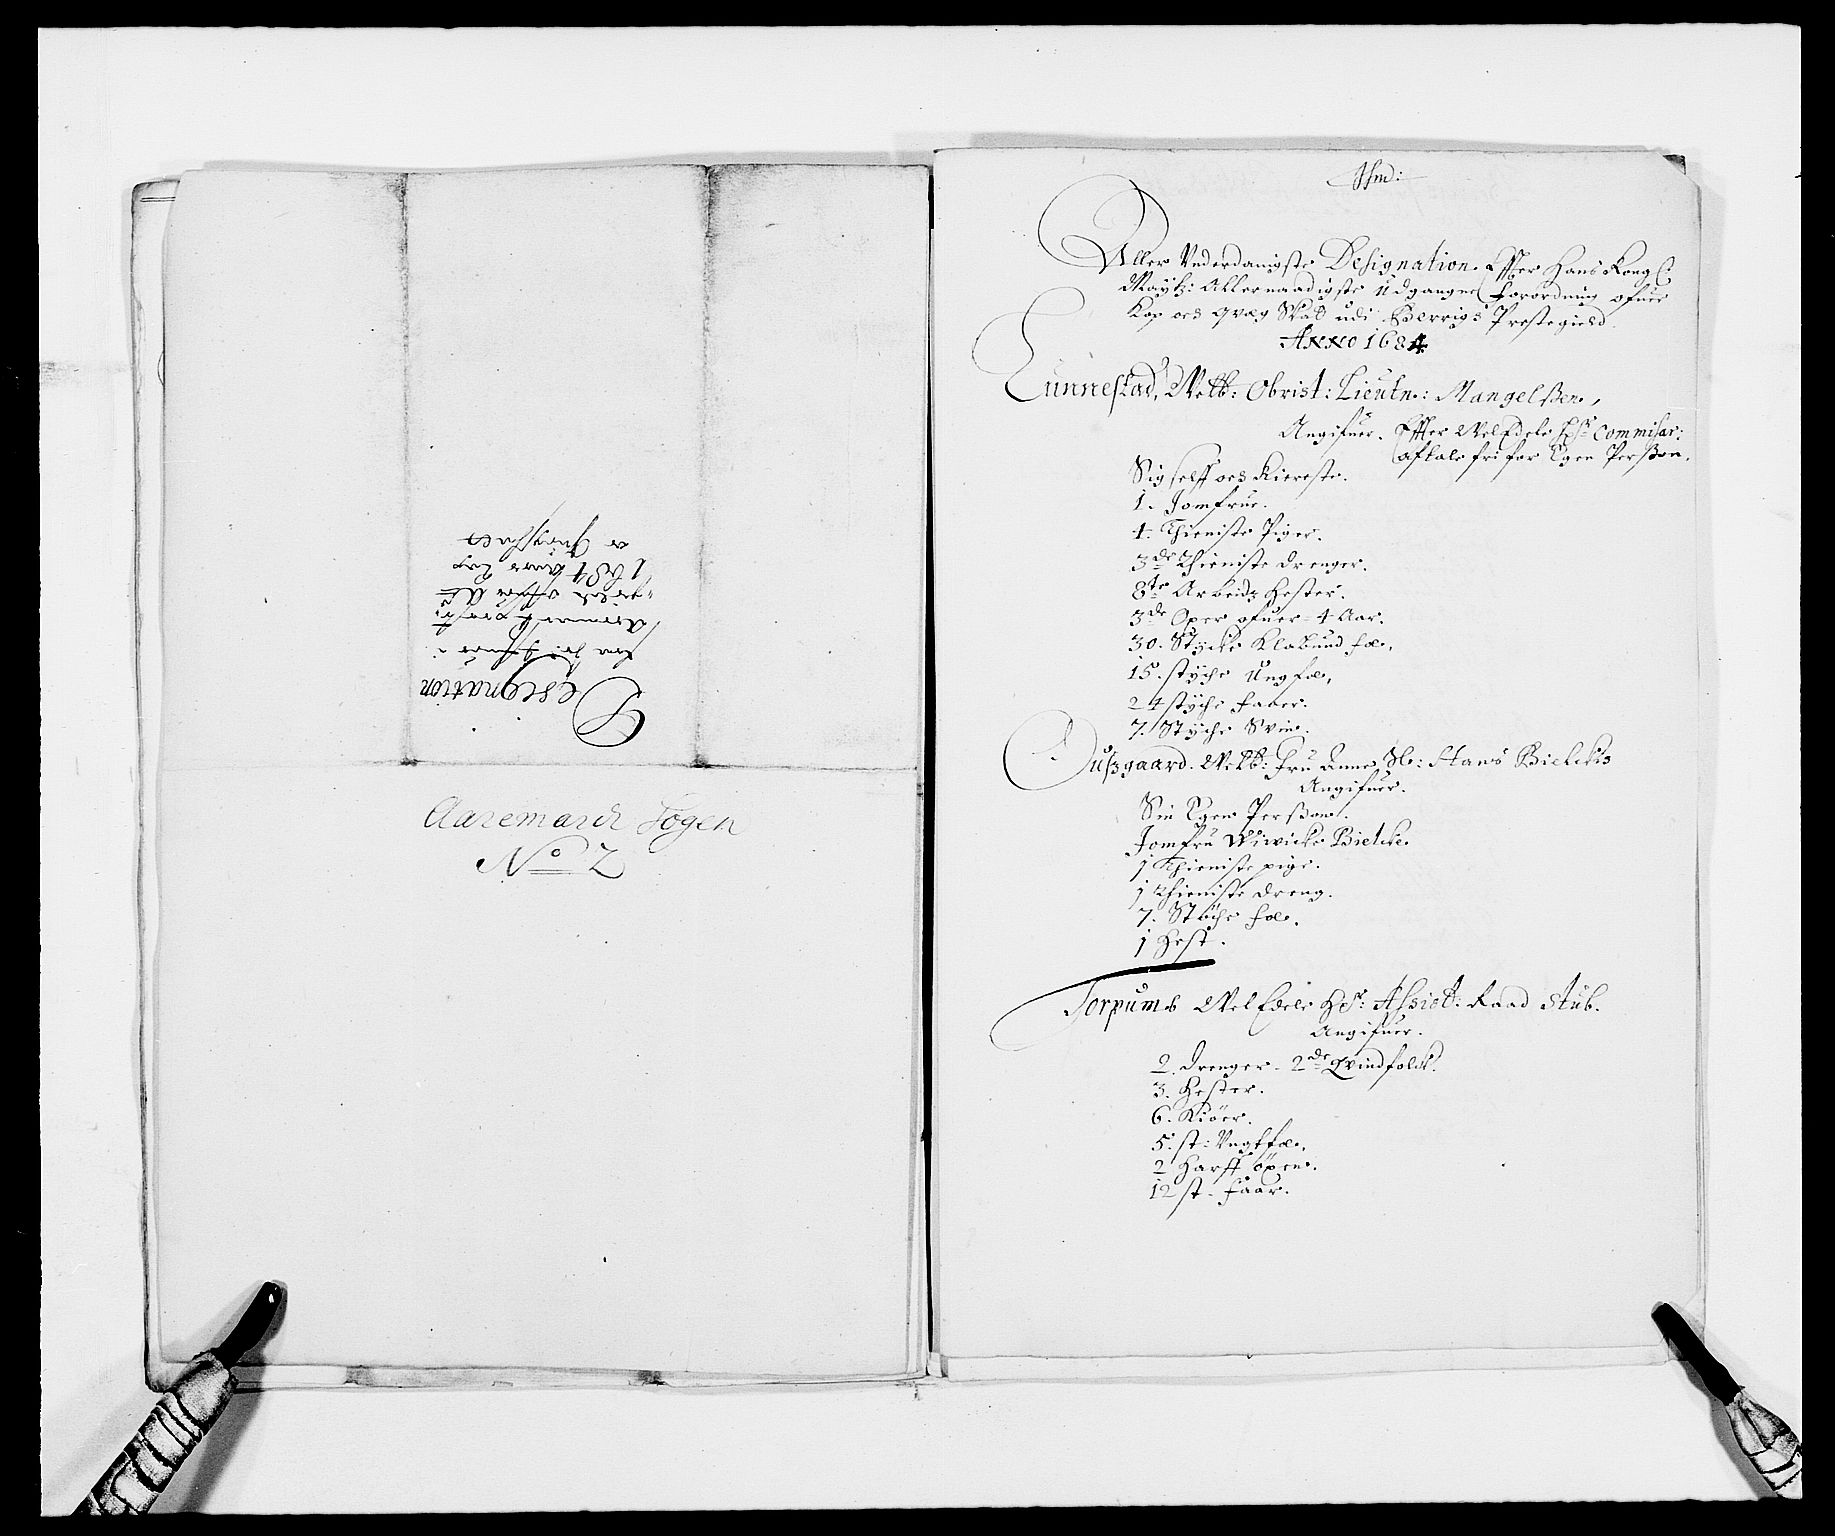 Designation
Aaremarck
1684
Aaremarck Sogen
No 2
Jhm:
Aller Underdanigste Designation. Effter Hans Kongl:
Mayt: Allernaadigste Udgangne Forordning ofuer
Kop och Qvæg Skat udi Berrigs Prestegield.
ANNO 1684
Tunnestad, Welb: Obrist: Lieutn: Mangelßen,
Angifuer. Effter WelEdele Hr Commisar:
aftale fri for Egen Perßon.
Sig selff och Kiereste.
1. Jomfrue.
4. Thieniste Piger.
3de Thieniste drenger.
8te Arbeidz Hester.
3de Oxer ofuer 4 Aar.
30. Stycke Klabund fæ,
15. stycke Ungfæ,
24 stycke Faaer.
7. Stycke Svin.
Ousgaard. Welb: Fru Anne Sl: Hans Bielckis
Angifuer.
Sin Egen Perßon.
Jomfru Wiwicke Bielcke
1 Thieniste pige.
1 Thieniste dreng.
7. Stöche fæ.
1 Hest.
Torpum WelEdele Hr: Assist: Raad Stub.
Angifuer.
2. drenger. 2de Qvindfolck.
3. Hester.
6. Kiöer.
5. st: Ungtfæ,
2 Harff öxene.
12 st. faar.